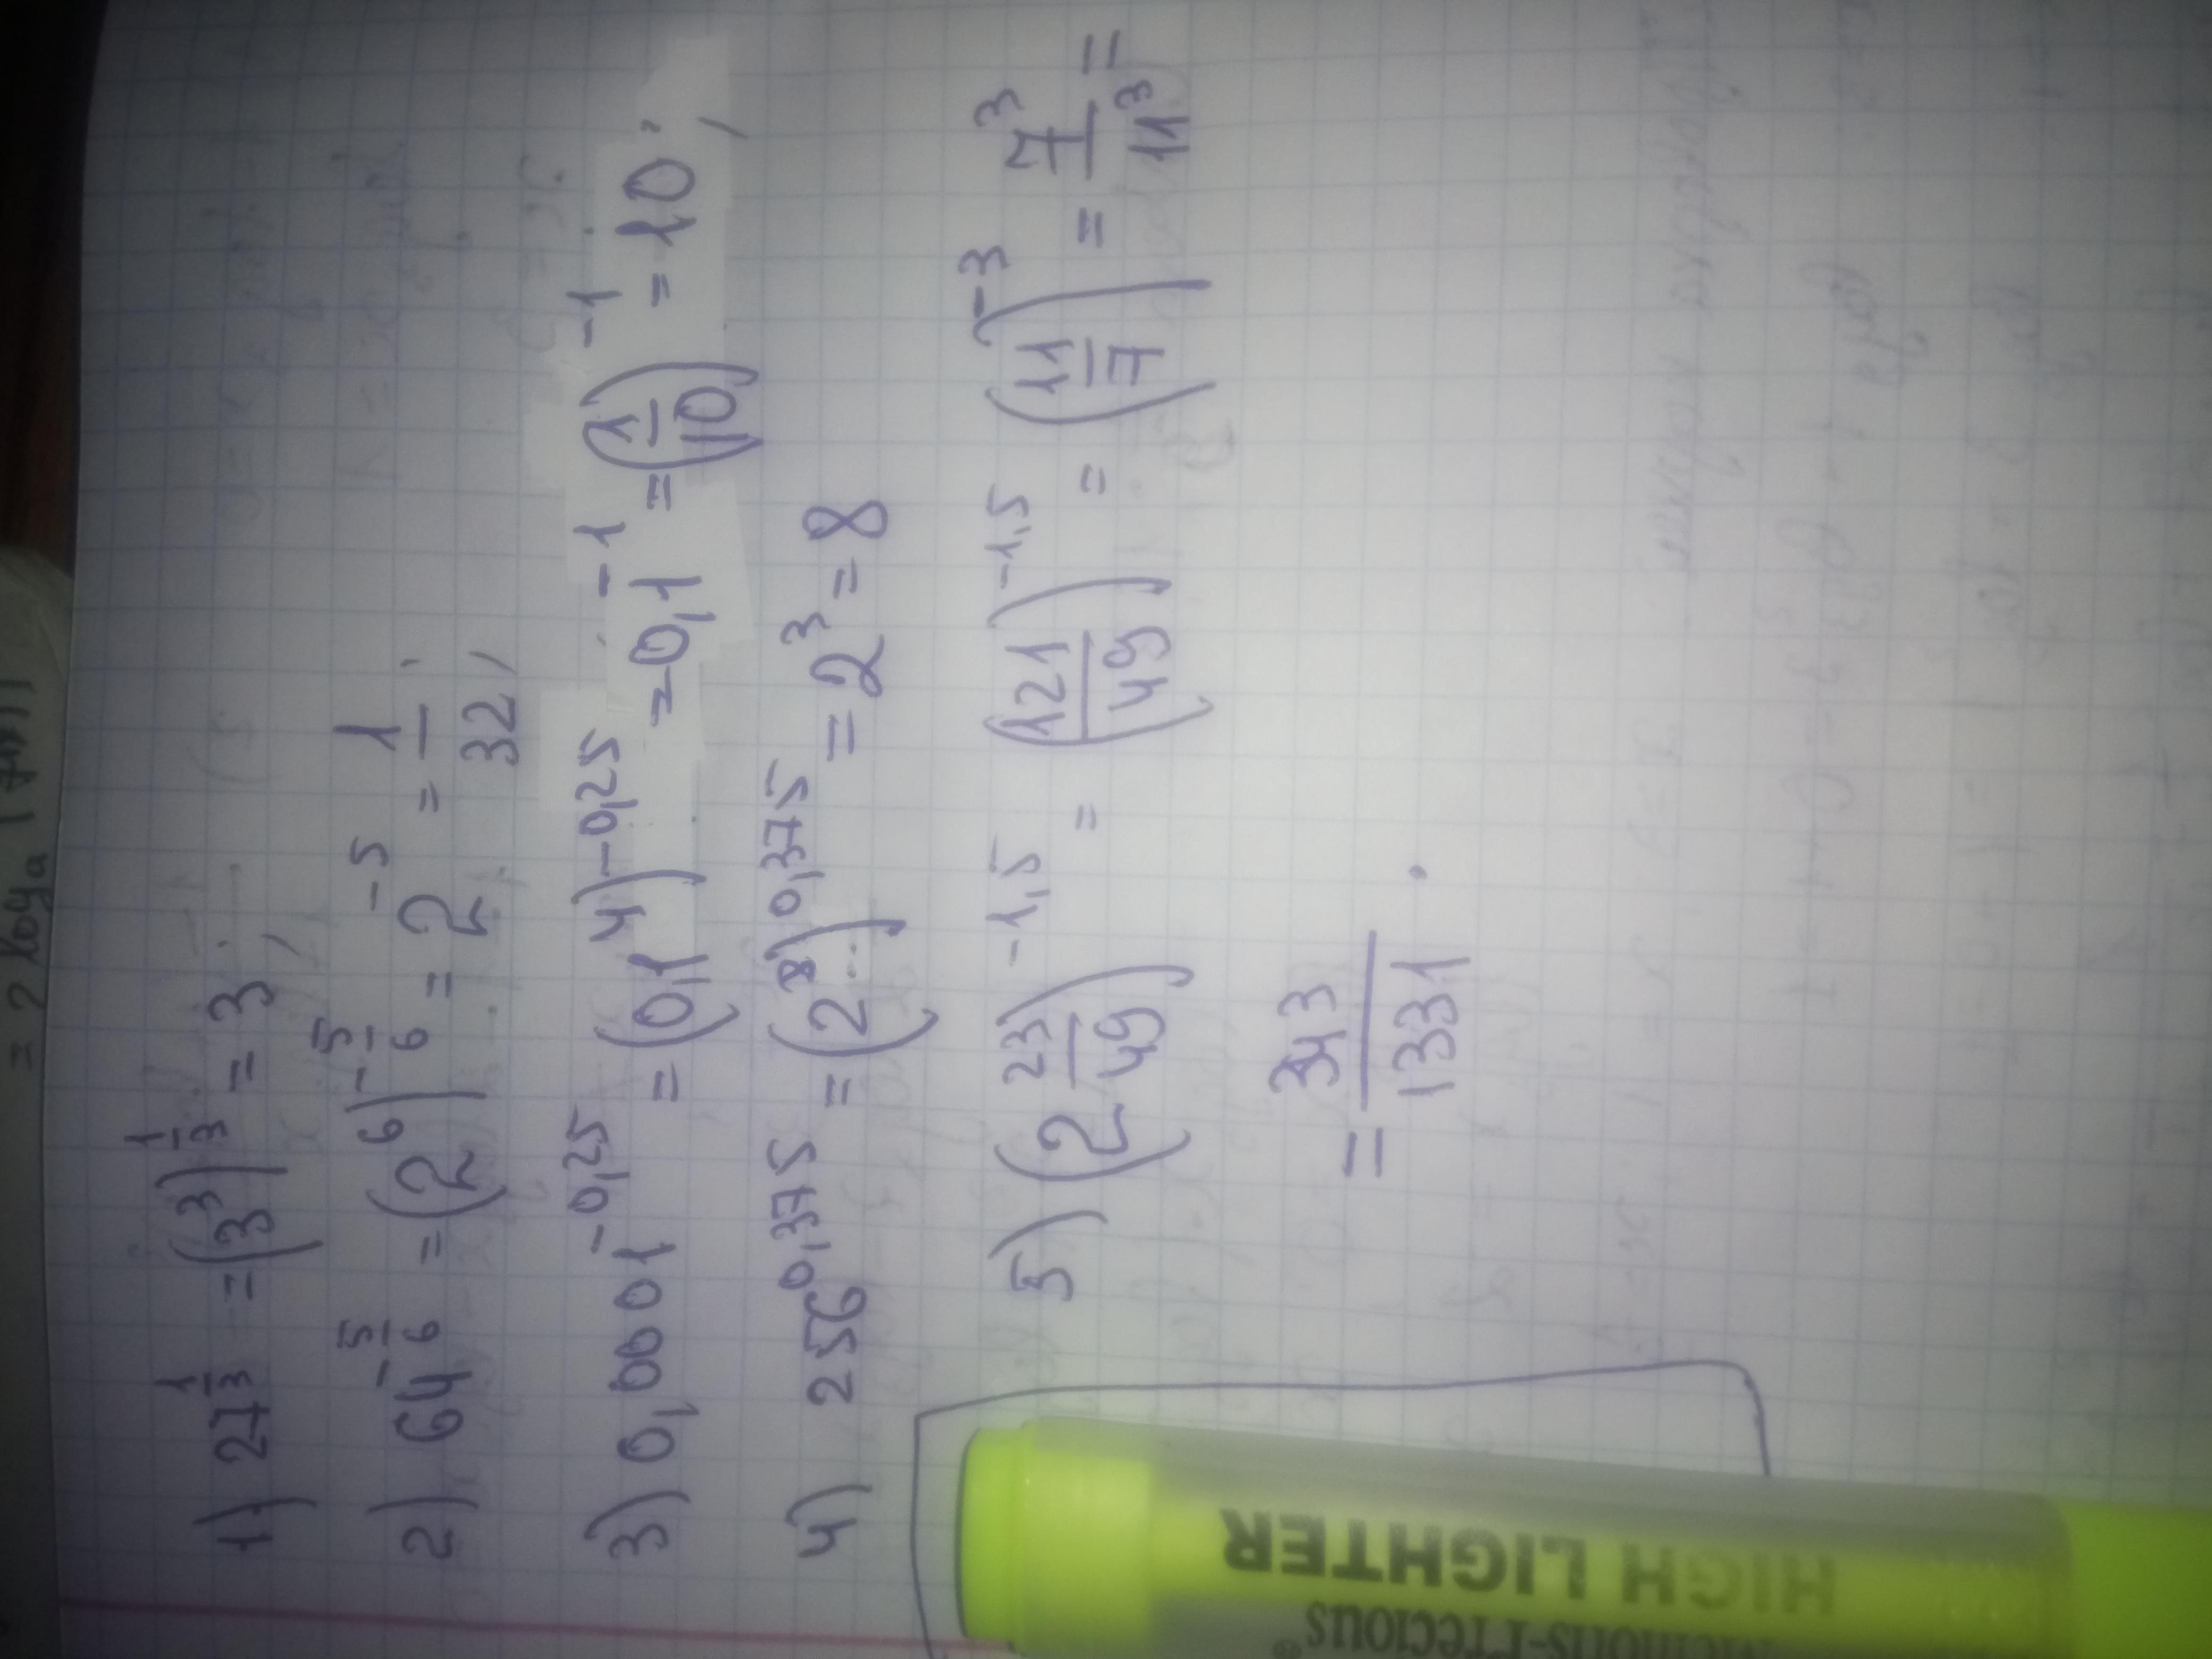 1) 27^(1/3) = (3^3)^(1/3) = 3;
2) 64^(-5/6) = (2^6)^(-5/6) = 2^(-5) = 1/32;
3) 0,0001^(-0,25) = (0,1^4)^(-0,25) = 0,1^(-1) = (1/10)^(-1) = 10;
4) 256^(0,375) = (2^8)^(0,375) = 2^3 = 8
5) (2 23/49)^(-1,5) = (121/49)^(-1,5) = (11/7)^(-3) = 7^3/11^3 =
= 343/1331.
HIGH LIGHTER